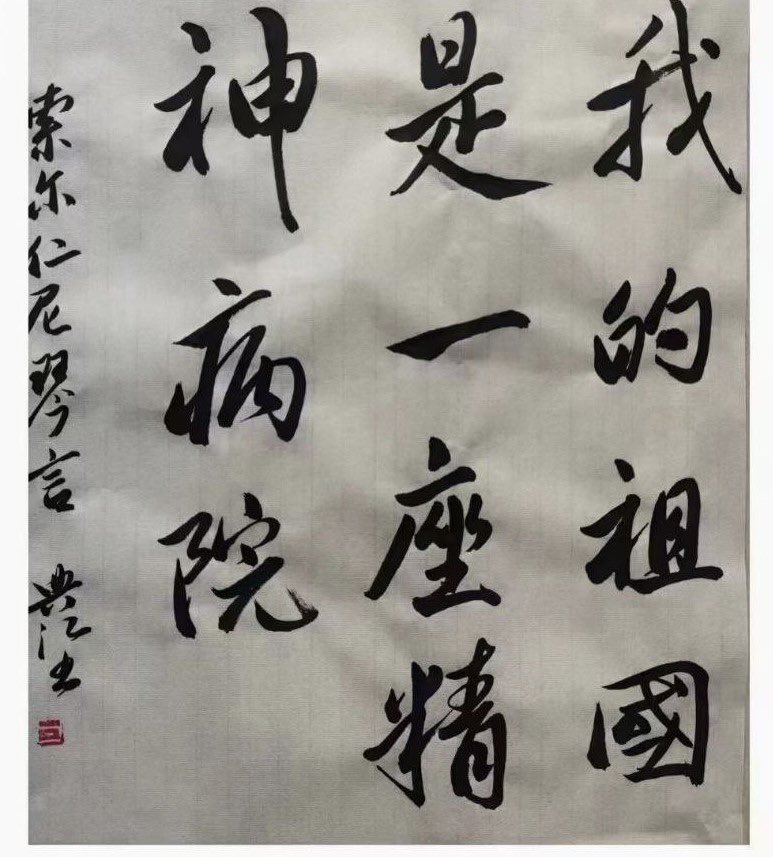 我的祖國
是一座精
神病院
索尔仁尼琴言 典江书